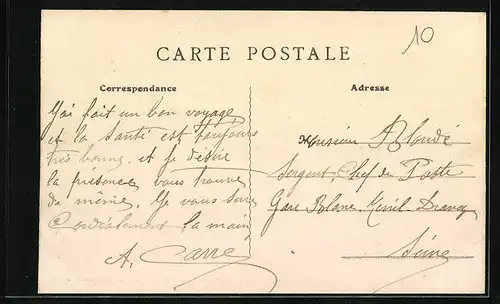 10
CARTE POSTALE
Correspondance
J'ai fait un bon voyage
et la santé est toujours
très bonne et je désire
la présence vous trouve
de même. Je vous serre
Cordialement la main
A. Carré
Adresse
Monsieur Blondé
Sergent, Chef de Poste
Gare Blanc-Mesnil-Drancy
Seine